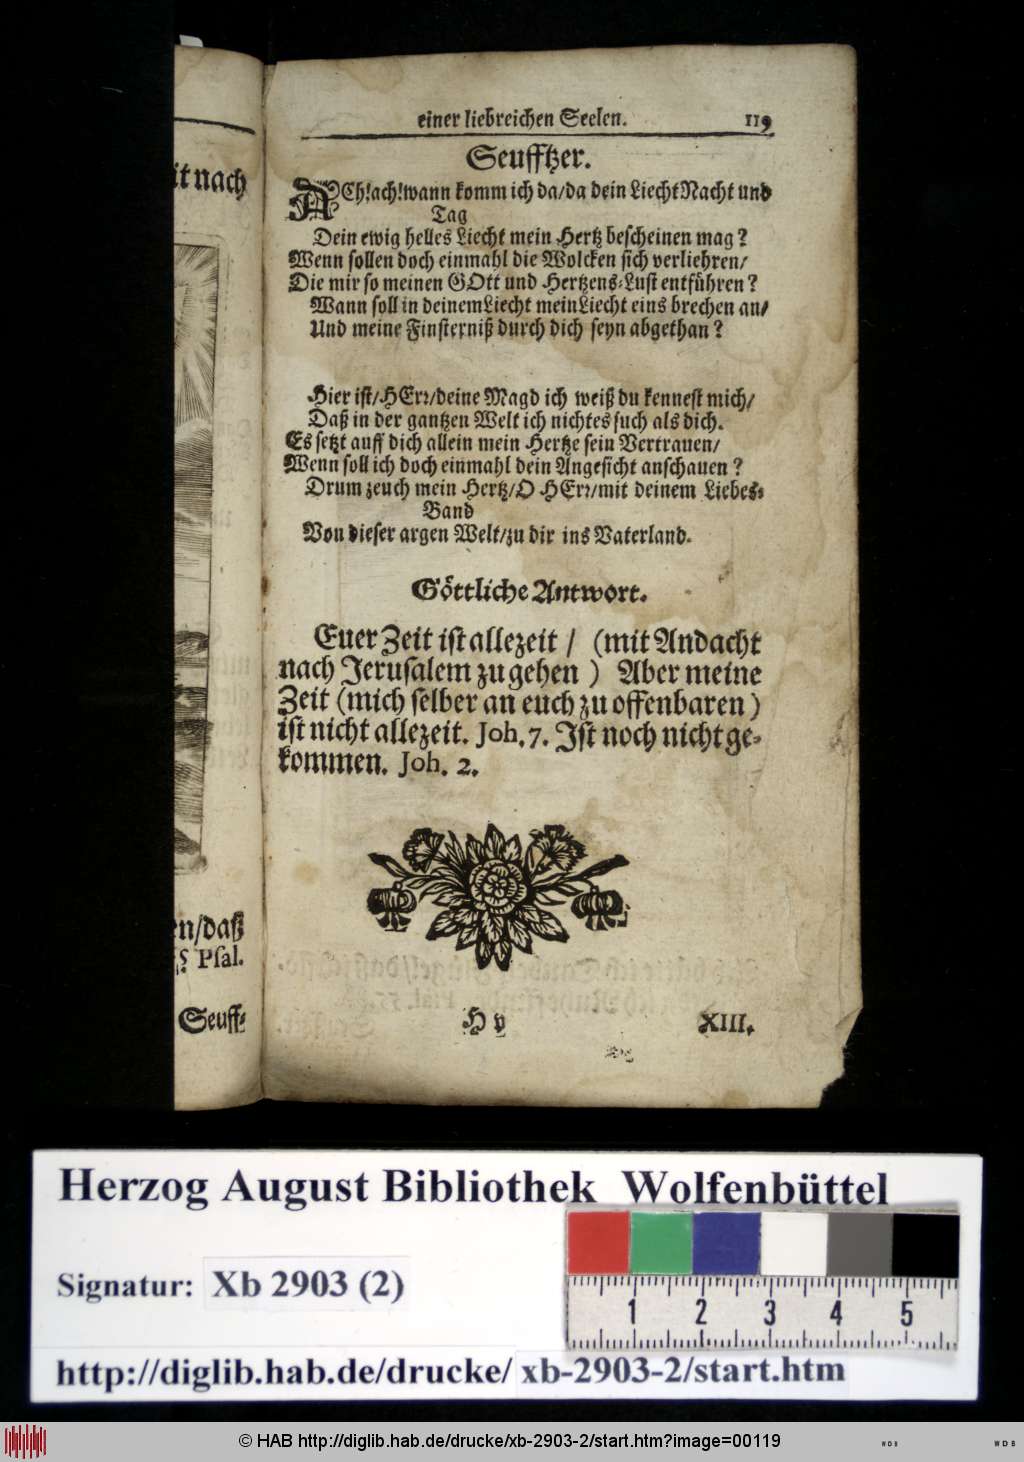 it nach
en/daß
Psal.
Seuff⸗
einer liebreichen Seelen. 119
Seufftzer.
ACh! ach! wann komm ich da/ da dein Liecht Nacht und
Tag
Dein ewig helles Liecht mein Hertz bescheinen mag?
Wenn sollen doch einmahl die Wolcken sich verliehren/
Die mir so meinen GOtt und Hertzens⸗Lust entführen?
Wann soll in deinem Liecht mein Liecht eins brechen an/
Und meine Finsterniß durch dich seyn abgethan?
Hier ist/ HErr/ deine Magd ich weiß du kennest mich/
Daß in der gantzen Welt ich nichtes such als dich.
Es setzt auff dich allein mein Hertze sein Vertrauen/
Wenn soll ich doch einmahl dein Angesicht anschauen?
Drum zeuch mein Hertz/ O HErr/ mit deinem Liebes⸗
Band
Von dieser argen Welt/ zu dir ins Vaterland.
Göttliche Antwort.
Euer Zeit ist allezeit / (mit Andacht
nach Jerusalem zu gehen ) Aber meine
Zeit (mich selber an euch zu offenbaren )
ist nicht allezeit. Joh. 7. Ist noch nicht ge⸗
kommen. Joh. 2.
H v XIII.
Herzog August Bibliothek Wolfenbüttel
Signatur: Xb 2903 (2)
1 2 3 4 5
http://diglib.hab.de/drucke/ xb-2903-2/start.htm
© HAB http://diglib.hab.de/drucke/xb-2903-2/start.htm?image=00119
WDB WDB